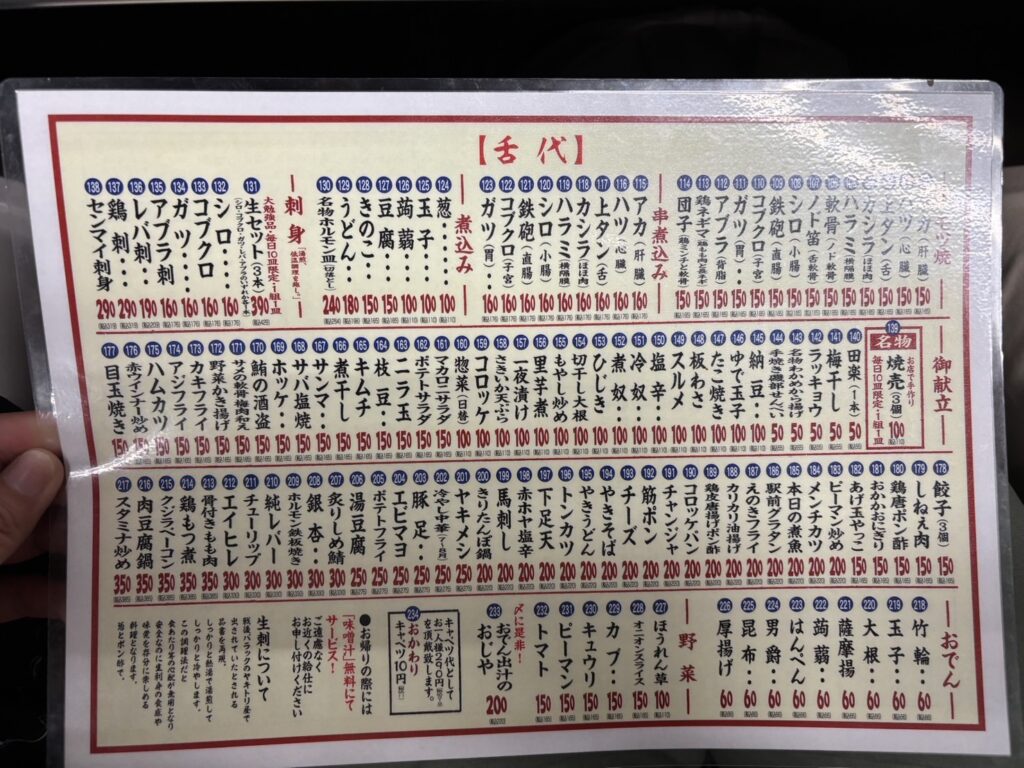 【舌代】
焼
アカ(肝臓) 150
ハツ(心臓) 150
上タン(舌) 150
カシラ(ほほ肉) 150
ハラミ(横隔膜) 150
軟骨(ノド軟骨) 150
107 ノド笛(舌軟骨) 150
108 シロ(小腸) 150
109 鉄砲(直腸) 150
110 コブクロ(子宮) 150
111 ガツ(胃)‥ 150
112 アブラ(背脂) 150
113 鶏ネギマ 150
114 団子(鶏ミンチと軟骨) 150
串煮込み
115 アカ(肝臓) 160
116 ハツ(心臓) 160
117 上タン(舌) 160
118 カシラ(ほほ肉) 160
119 ハラミ(横隔膜) 160
120 シロ(小腸) 160
121 鉄砲(直腸) 160
122 コブクロ(子宮) 160
123 ガツ(胃) 160
煮込み
124 葱‥‥ 100
125 玉子‥‥ 100
126 蒟蒻‥‥ 100
127 豆腐‥‥ 150
128 きのこ‥ 150
129 うどん‥ 180
130 名物ホルモン皿(切落なし) 240
刺身
「湯煎、低温調理を施し。」
131 生セット(3本) 390
大勉強品・毎日10皿限定・1組1皿
132 シロ‥‥ 160
133 コブクロ 160
134 ガツ‥‥ 160
135 アブラ刺 160
136 レバ刺‥ 190
137 鶏刺‥‥ 290
138 センマイ刺身 290
御献立
139 名物
お店で手作り
焼売(3個) 100
毎日10皿限定・1組1皿
140 田楽(一本) 50
141 梅干し 50
142 ラッキョウ 50
143 名物わかめから揚げ 50
144 手焼き磯部せんべい 50
145 納豆‥ 100
146 ゆで玉子 100
147 たこ焼き 100
148 板わさ 100
149 スルメ 100
150 塩辛‥ 100
151 冷奴‥ 100
152 煮奴‥ 100
153 ひじき 100
154 切干し大根 100
155 もやし炒め 100
156 里芋煮 100
157 一夜漬け 100
158 さきいか天ぷら 100
159 コロッケ 100
160 惣菜(日替) 100
161 マカロニサラダ 150
162 ポテトサラダ 150
163 ニラ玉 150
164 枝豆‥ 150
165 キムチ 150
166 煮干し 150
167 サンマ‥ 150
168 サバ塩焼 150
169 ホッケ‥ 150
170 鮪の酒盗 150
171 サメの軟骨梅肉和え 150
172 野菜かき揚げ 150
173 カキフライ 150
174 アジフライ 150
175 ハムカツ 150
176 赤ウインナー炒め 150
177 目玉焼き 150
178 餃子(3個) 150
179 しねぇ肉 150
180 鶏唐ポン酢 150
181 おかかおにぎり 150
182 あげ玉やっこ 150
183 ピーマン炒め 150
184 メンチカツ 200
185 本日の煮魚 200
186 駅前グラタン 200
187 えのきフライ 200
188 カリカリ油揚げ 200
189 鶏皮唐揚げポン酢 200
190 コロッケパン 200
191 チャンジャ 200
192 筋ポン 200
193 チーズ 200
194 やきそば 200
195 やきうどん 200
196 トンカツ 200
197 下足天 200
198 赤ホヤ塩辛 200
199 馬刺し 200
200 きりたんぽ鍋 200
201 ヤキメシ 250
202 冷やし中華 250
203 豚足‥ 250
204 エビマヨ 250
205 ポテトフライ 250
206 湯豆腐 250
207 炙りしめ鯖 300
208 銀杏‥ 300
209 ホルモン鉄板焼き 300
210 純レバー 300
211 チューリップ 300
212 エイヒレ 300
213 骨付きもも肉 350
214 鶏もつ煮 350
215 クジラベーコン 350
216 肉豆腐鍋 350
217 スタミナ炒め 350
おでん
218 竹輪‥ 60
219 玉子‥ 60
220 大根‥ 60
221 薩摩揚 60
222 蒟蒻‥ 60
223 はんぺん 60
224 男爵‥ 60
225 昆布‥ 60
226 厚揚げ 60
野菜
227 ほうれん草 100
228 オニオンスライス 150
229 カブ‥ 150
230 キュウリ 150
231 ピーマン 150
232 トマト 150
〆に是非!
233 おでん出汁のおじや 200
キャベツ代として
お一人様290円
を頂戴致します。
234 おかわり
キャベツ10円
●お帰りの際には
「味噌汁」無料にて
サービス!
ご遠慮なく
お近くの給仕に
お申し付けください
生刺について
戦後、バラックのヤキトリ屋で
出されていたとされる
品書を再現。
しっかりと熱湯で湯煎して
しっかりと冷やします。
この調理法だと
食あたり等の心配が無用となり
安全なのに生刺身の食感や
味覚を存分に楽しめる
料理となります。
葱とポン酢で。